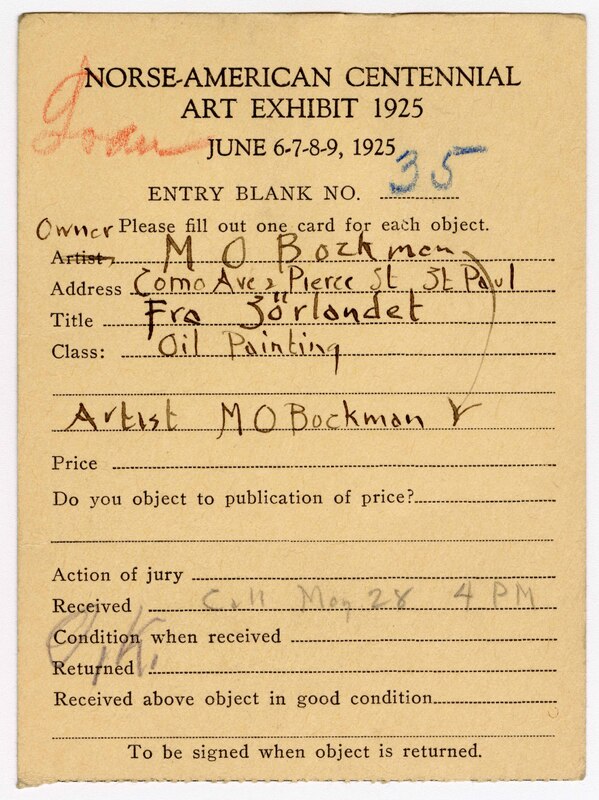 NORSE-AMERICAN CENTENNIAL
ART EXHIBIT 1925
Loan
JUNE 6-7-8-9, 1925
ENTRY BLANK NO. 35
Owner Please fill out one card for each object.
Artist M O Bockman
Address Como Ave & Pierce St St Paul
Title Fra Sörlandet
Class: Oil Painting
Artist M O Bockman
Price
Do you object to publication of price?
Action of jury
Received Call May 28 4 PM
Condition when received
O.K.
Returned
Received above object in good condition
To be signed when object is returned.